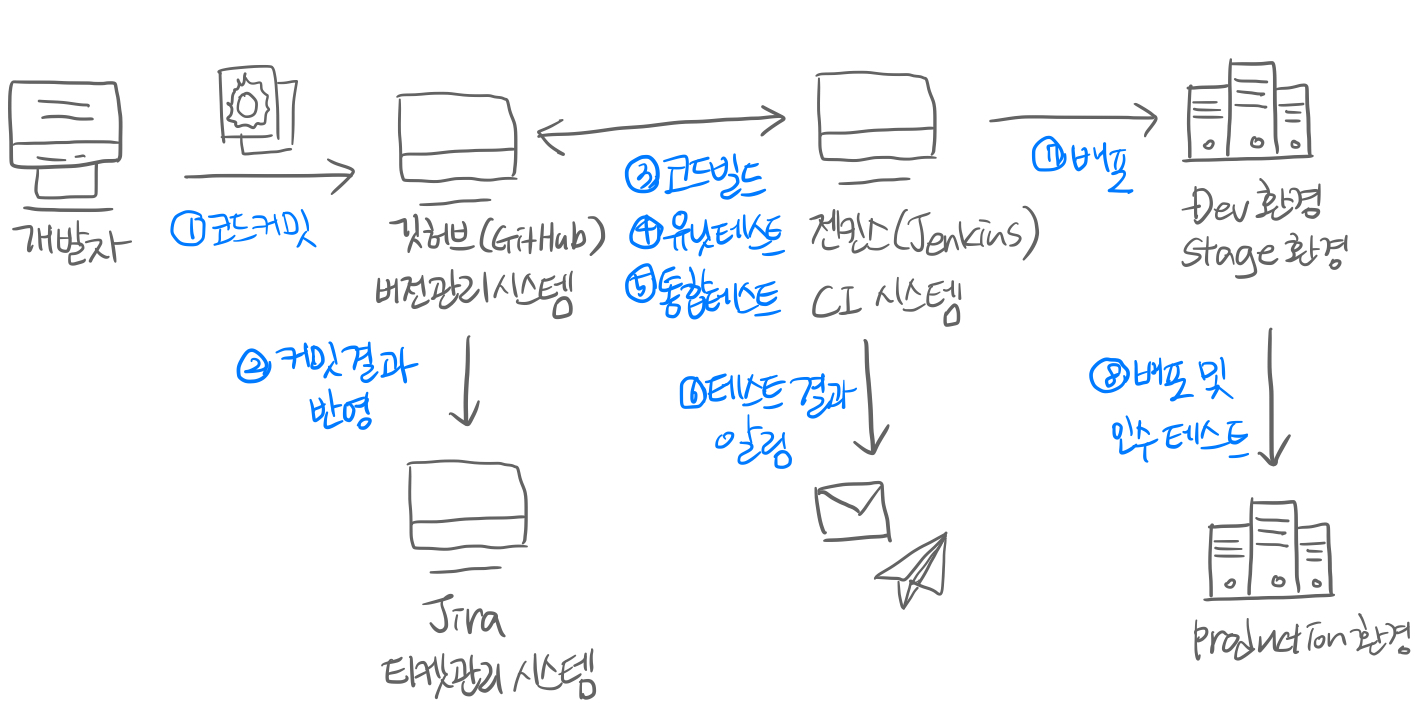 개발자
①코드커밋
깃허브(GitHub)
버전관리시스템
②커밋결과
반영
Jira
티켓관리 시스템
③코드빌드
④유닛테스트
⑤통합테스트
젠킨스(Jenkins)
CI 시스템
⑥테스트 결과
알림
⑦배포
Dev 환경
Stage 환경
⑧배포 및
인수 테스트
Production 환경